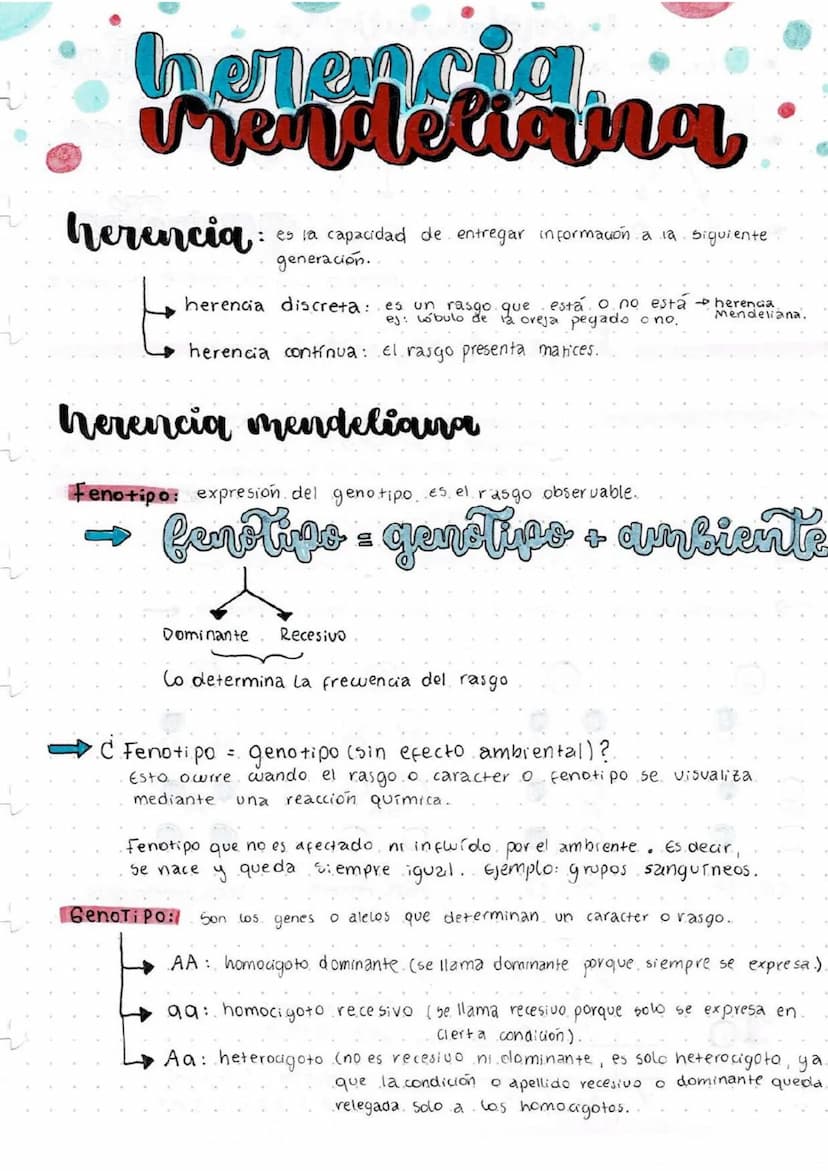 herencia
mendeliana
herencia: es la capacidad de entregar información a la siguiente
generación.
herencia discreta: es un rasgo que está o no está → herencia
ej: lóbulo de la oreja pegado o no. Mendeliana.
herencia contínua: el rasgo presenta matices.
herencia mendeliana
Fenotipo: expresión del genotipo, es el rasgo observable.
fenotipo = genotipo + ambiente
Dominante Recesivo
Lo determina la frecuencia del rasgo
¿Fenotipo = genotipo (sin efecto ambiental)?
Esto ocurre cuando el rasgo o caracter o fenotipo se visualiza
mediante una reacción química.
Fenotipo que no es afectado ni influído por el ambiente. Es decir,
se nace y queda siempre igual. Ejemplo: grupos sanguíneos.
GenoTiPO: Son los genes o alelos que determinan un carácter o rasgo.
AA: homocigoto dominante (se llama dominante porque siempre se expresa.)
aa: homocigoto recesivo (se llama recesivo porque solo se expresa en
cierta condición).
Aa: heterocigoto (no es recesivo ni dominante, es solo heterocigoto, ya
que la condición o apellido recesivo o dominante queda
relegada solo a los homocigotos.